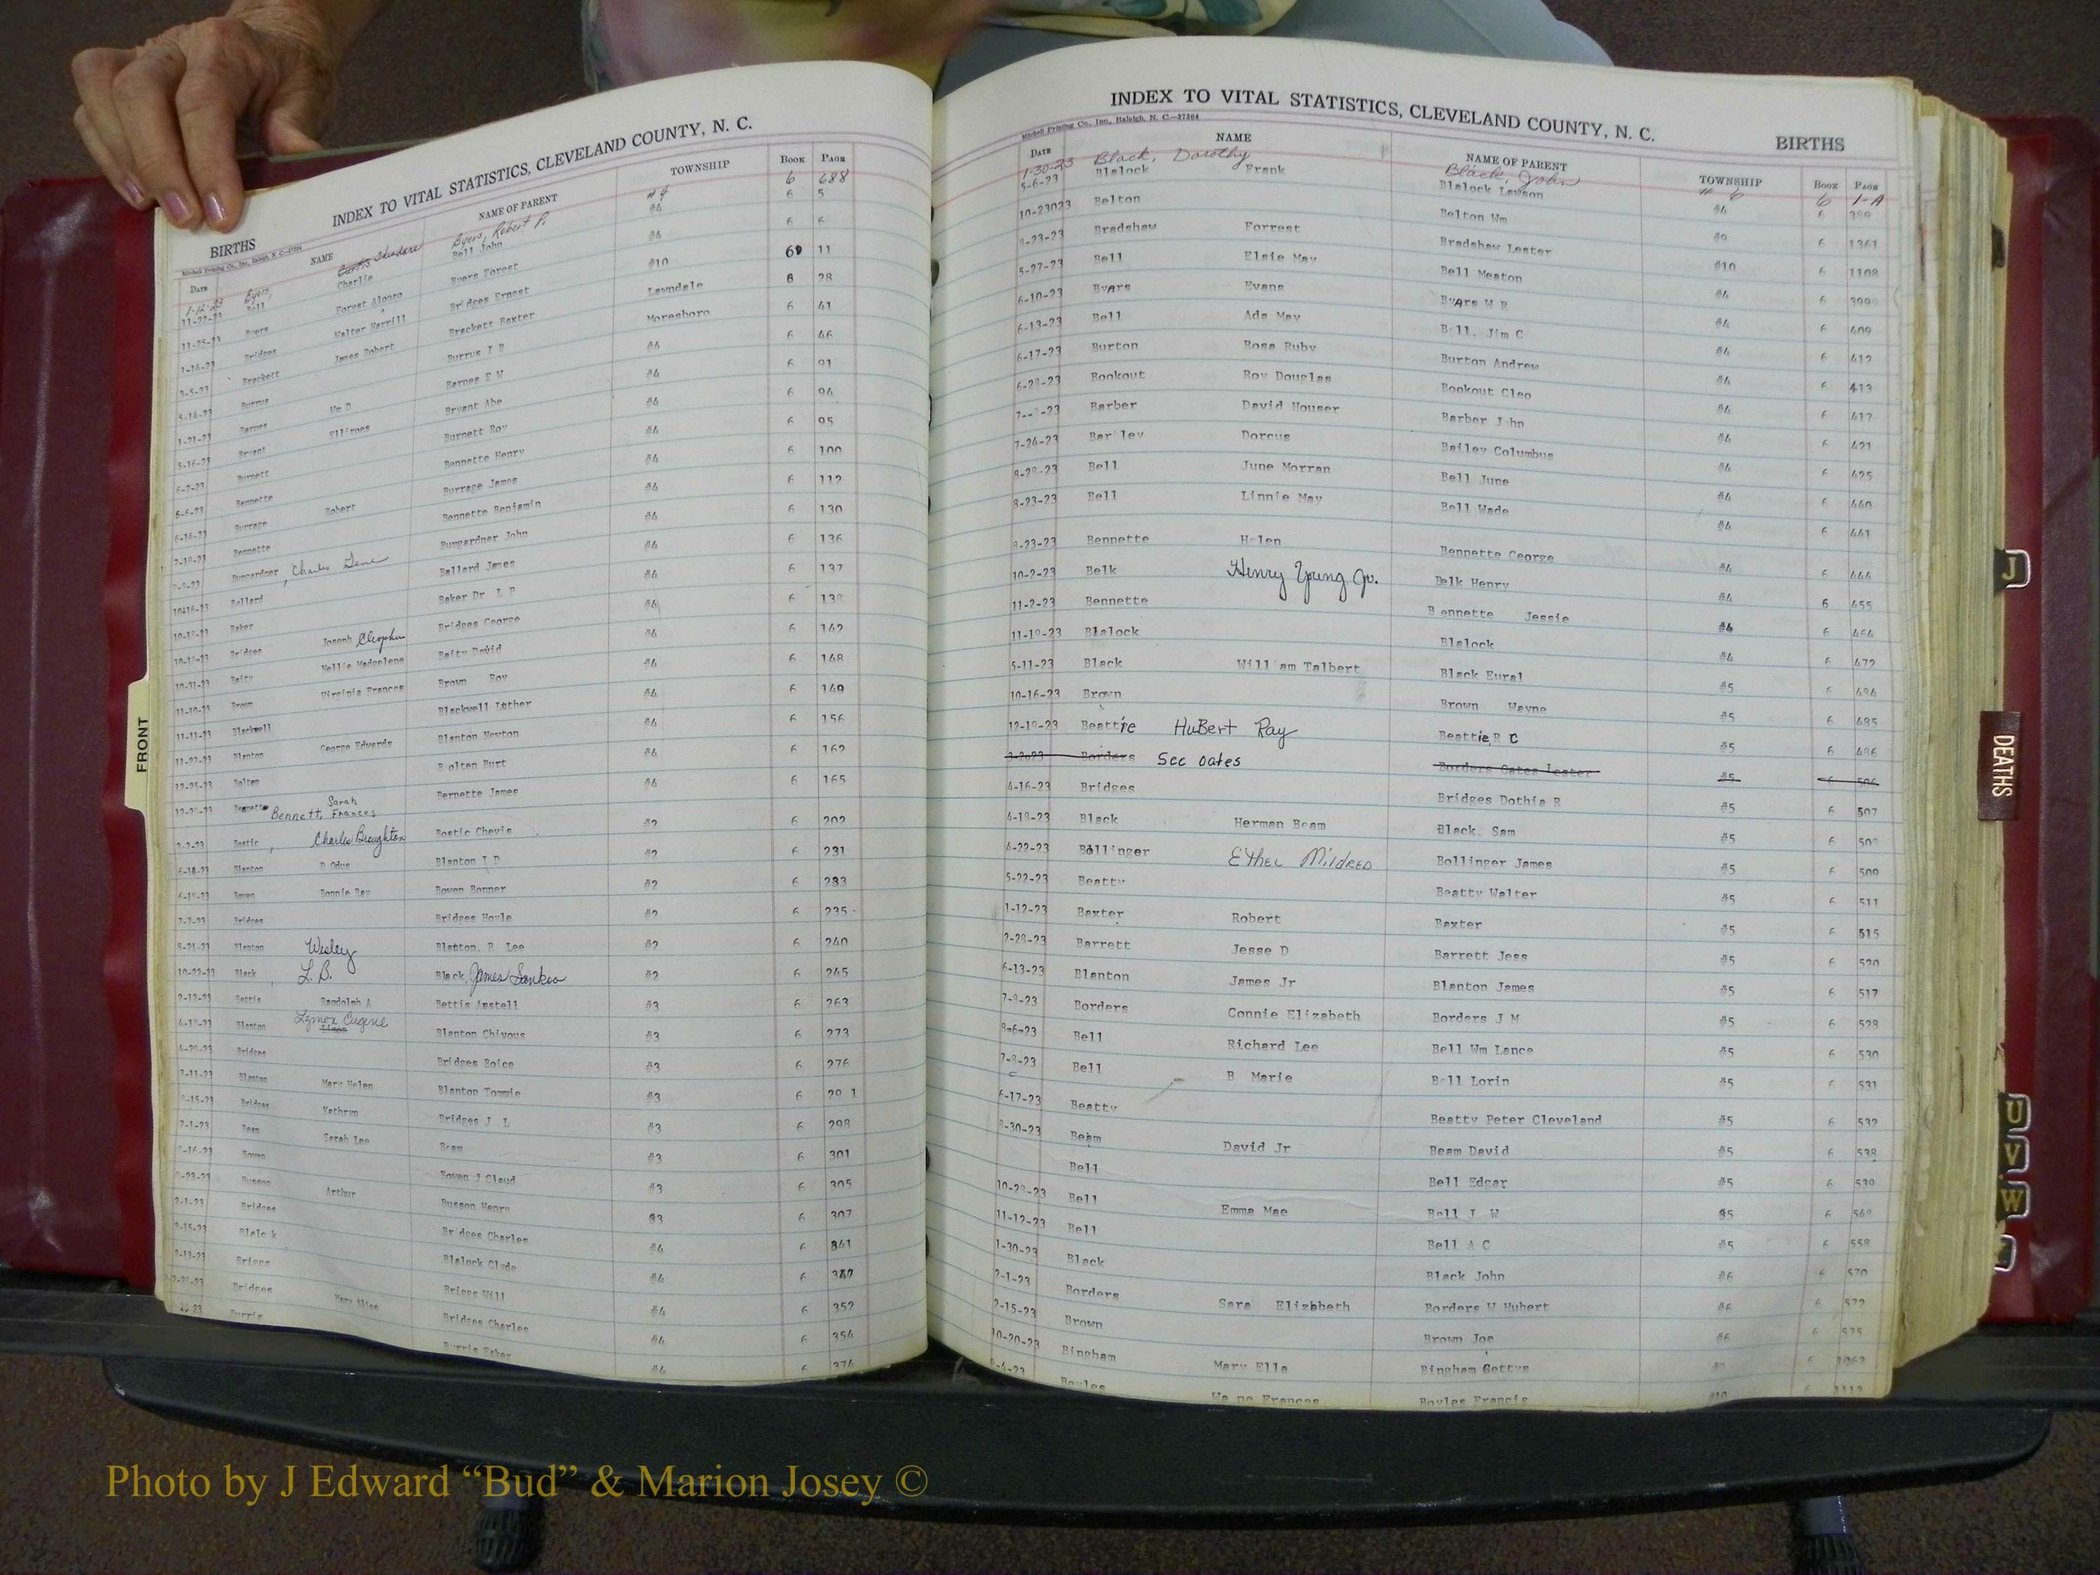 INDEX TO VITAL STATISTICS, CLEVELAND COUNTY, N. C.
BIRTHS
DATE NAME NAME OF PARENT TOWNSHIP BOOK PAGE
1-12-23 Byers, Curtis Theodore Byers, Robert P. #4 6 688
11-22-23 Bell Charlie Bell John #4 6 5
11-25-23 Byers Forest Alonzo Byers Forest #4 6 6
Bridges Walter Harrill Bridges Ernest #10 60 11
Brackett James Robert Brackett Baxter Lawndale 6 28
5-14-23 Burrus Burrus I B Moresboro 6 41
1-21-23 Barnes Wm D Barnes E W #4 6 46
5-16-23 Bryant Bryant Abe #4 6 91
6-2-23 Burnett Burnett Roy #4 6 94
6-6-23 Bennette Bennette Henry #4 6 95
6-14-23 Burrage Robert Burrage James #4 6 100
Bennette Bennette Benjamin #4 6 112
Bumgardner, Charles Gene Bumgardner John #4 6 130
10-16-23 Bellard Bellard James #4 6 136
Baker Baker Dr L P #4 6 137
Bridges Joseph Bridges George #4 6 138
10-31-23 Beity Nellie Madgelene Beity David #4 6 142
11-10-23 Brown Virginia Frances Brown Roy #4 6 148
11-11-23 Blackwell Blackwell Luther #4 6 149
11-27-23 Blanton George Edwards Blanton Newton #4 6 156
12-25-23 Bolten Bolten Burt #4 6 162
Bennett, Sarah Frances Bernette James #4 6 165
2-2-23 Bostic, Charles Broughton Bostic Chevis #2 6 202
6-18-23 Blanton D Odus Blanton I D #2 6 231
6-19-23 Bowen Bonnie Ray Bowen Bonner #2 6 233
7-7-23 Bridges Bridges Hoyle #2 6 235
8-21-23 Blanton Wesley Blanton, R Lee #2 6 240
10-22-23 Black, L. B. Black, James #2 6 245
2-12-23 Bettis Randolph A Bettis Anstell #3 6 263
6-19-23 Blanton Eugene Blanton Chivous #3 6 273
Bridges Bridges Boice #3 6 276
7-11-23 Blanton Mary Helen Blanton Tommie #3 6 29 1
8-15-23 Bridges Kathryn Bridges J L #3 6 298
7-1-23 Beam Sarah Lee Beam #3 6 301
Bowen Bowen J Claud #3 6 305
Busson Arthur Busson Henry 33 6 307
2-1-23 Bridges Bridges Charles #4 6 341
2-15-23 Blalo k Blalock Clyde #4 6
Briggs Briggs Will #4 6 352
Bridges Mary Alice Bridges Charles #4 6 354
Burris Burris Esker #4 6 374
INDEX TO VITAL STATISTICS, CLEVELAND COUNTY, N. C.
BIRTHS
Mitchell Printing Co., Inc., Raleigh, N. C.—27204
DATE NAME NAME OF PARENT TOWNSHIP BOOK PAGE
1-30-23 Black, Dorothy Black, John # 6 6 1-A
5-6-23 Blalock Frank Blalock Lawson #4 6 399
10-23023 Belton Belton Wm #9 6 1361
8-23-23 Bradshaw Forrest Bradshaw Lester #10 6 1108
5-27-23 Bell Elsie May Bell Meaton #4 6 399
6-10-23 Byars Evans Byars W R #4 6 409
6-13-23 Bell Ada May Bell, Jim C #4 6 412
6-17-23 Burton Rosa Ruby Burton Andrew #4 6 413
6-28-23 Bookout Roy Douglas Bookout Cleo #4 6 417
Barber David Houser Barber J hn #4 6 421
7-24-23 Bar ley Dorcus Bailey Columbus #4 6 425
8-28-23 Bell June Morran Bell June #4 6 440
8-23-23 Bell Linnie May Bell Wade #4 6 441
9-23-23 Bennette Helen Bennette George #4 6 444
10-2-23 Belk Henry Young Jr. Belk Henry #4 6 455
11-2-23 Bennette Bennette Jessie #4 6 464
11-19-23 Blalock Blalock #4 6 472
5-11-23 Black William Talbert Black Eural #5 6 484
10-16-23 Brown Brown Wayne #5 6 485
12-19-23 Beattie HuBert Ray Beattie R C #5 6 486
3-2023 Borders See Oates Borders Oates Lester #5 6 506
4-16-23 Bridges Bridges Dothia R #5 6 507
4-18-23 Black Herman Beam Black. Sam #5 6 508
4-22-23 Bollinger Ethel Mildred Bollinger James #5 6 509
5-22-23 Beatty Beatty Walter #5 6 511
1-12-23 Baxter Robert Baxter #5 6 515
2-28-23 Barrett Jesse D Barrett Jess #5 6 520
6-13-23 Blanton James Jr Blanton James #5 6 517
7-8-23 Borders Connie Elizabeth Borders J M #5 6 528
8-6-23 Bell Richard Lee Bell Wm Lance #5 6 530
7-8-23 Bell B Marie Bell Lorin #5 6 531
6-17-23 Beatty Beatty Peter Cleveland #5 6 532
8-30-23 Beam David Jr Beam David #5 6 538
Bell Bell Edgar #5 6 539
10-28-23 Bell Emma Mae Bell J W 35 6 548
11-12-23 Bell Bell A C #5 6 558
1-30-23 Black Black John #6 6 570
2-1-23 Borders Sara Elizabeth Borders W Hubert #6 6 572
2-15-23 Brown Brown Joe #6 6 575
10-20-23 Bingham Mary Ella Bingham Gettys 6 1062
Boyles Frances Boyles Francis #10 6 1112
FRONT
J
DEATHS
U
V
W
Photo by J Edward “Bud” & Marion Josey ©